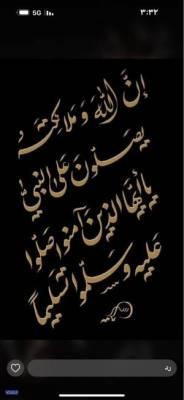 5G
٣:٣٢
إنَّ اللهَ وَمَلائِكَتَهُ
يصلّونَ عَلى النبيّ
يأيّها الذينَ آمنوا صَلّوا
عليه وسلّموا تسليماً
رد